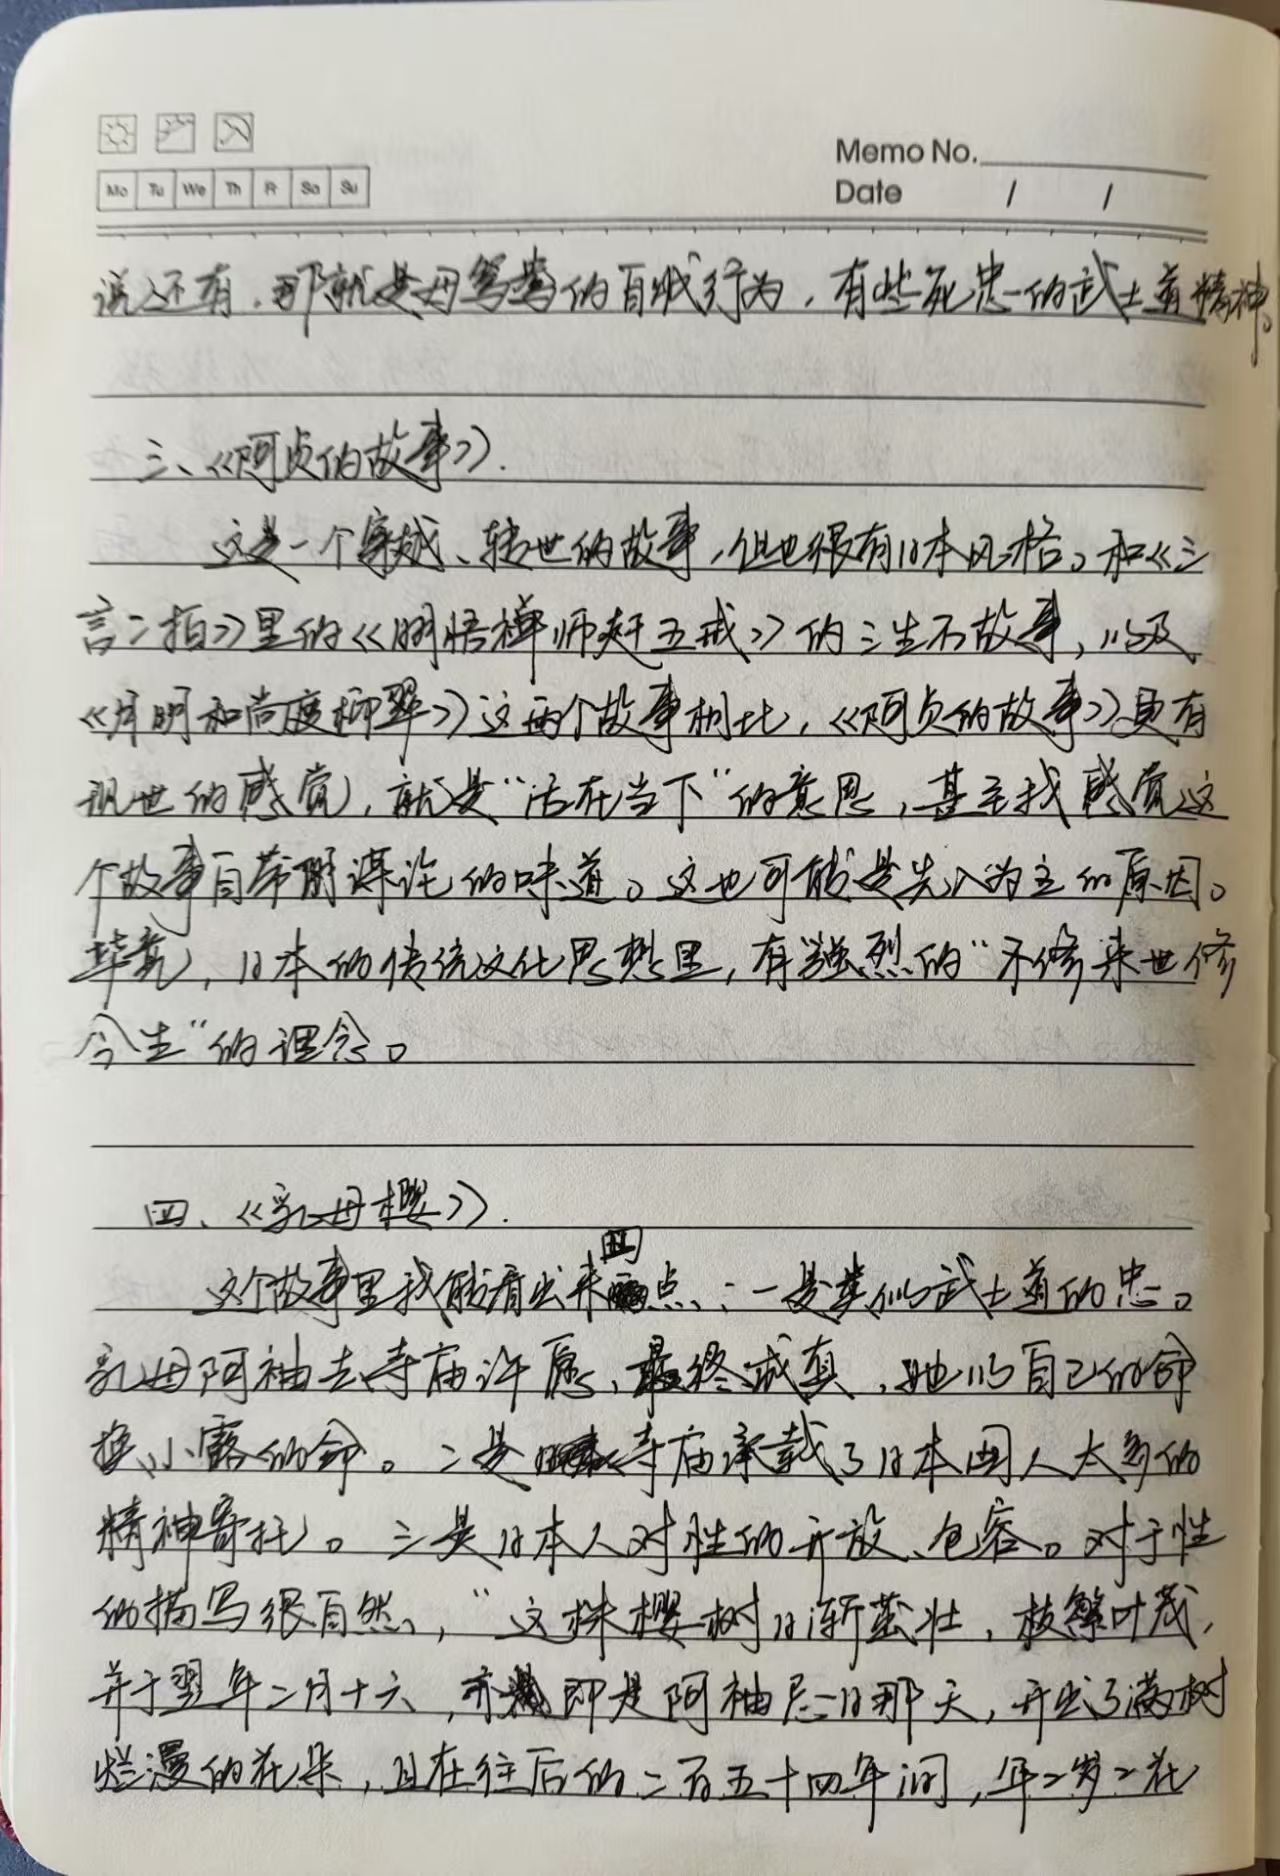 Memo No.
Mo Tu We Th Fr Sa Su
Date / /
说还有,那就是母鸳鸯的自戕行为,有些死忠的武士道精神。
三、《阿贞的故事》.
这是一个穿越、转世的故事,但也很有日本风格。和《三
言二拍》里的《明悟禅师赶五戒》的三生石故事,以及
《月明和尚度柳翠》这两个故事相比,《阿贞的故事》更有
现世的感觉,就是“活在当下”的意思,甚至我感觉这
个故事自带阴谋论的味道。这也可能是先入为主的原因。
毕竟,日本的传统文化思想里,有强烈的“不修来世修
今生”的理念。
四、《乳母樱》.
这个故事里我能看出来四点:一是类似武士道的忠。
乳母阿袖去寺庙许愿,最终成真,她以自己的命
换小露的命。二是寺庙承载了日本国人太多的
精神寄托。三是日本人对性的开放、包容。对于性
的描写很自然,“这株樱树日渐茁壮,枝繁叶茂,
并于翌年二月十六,亦即是阿袖忌日那天,开出了满树
烂漫的花朵,且在往后的二百五十四年间,年々岁々花